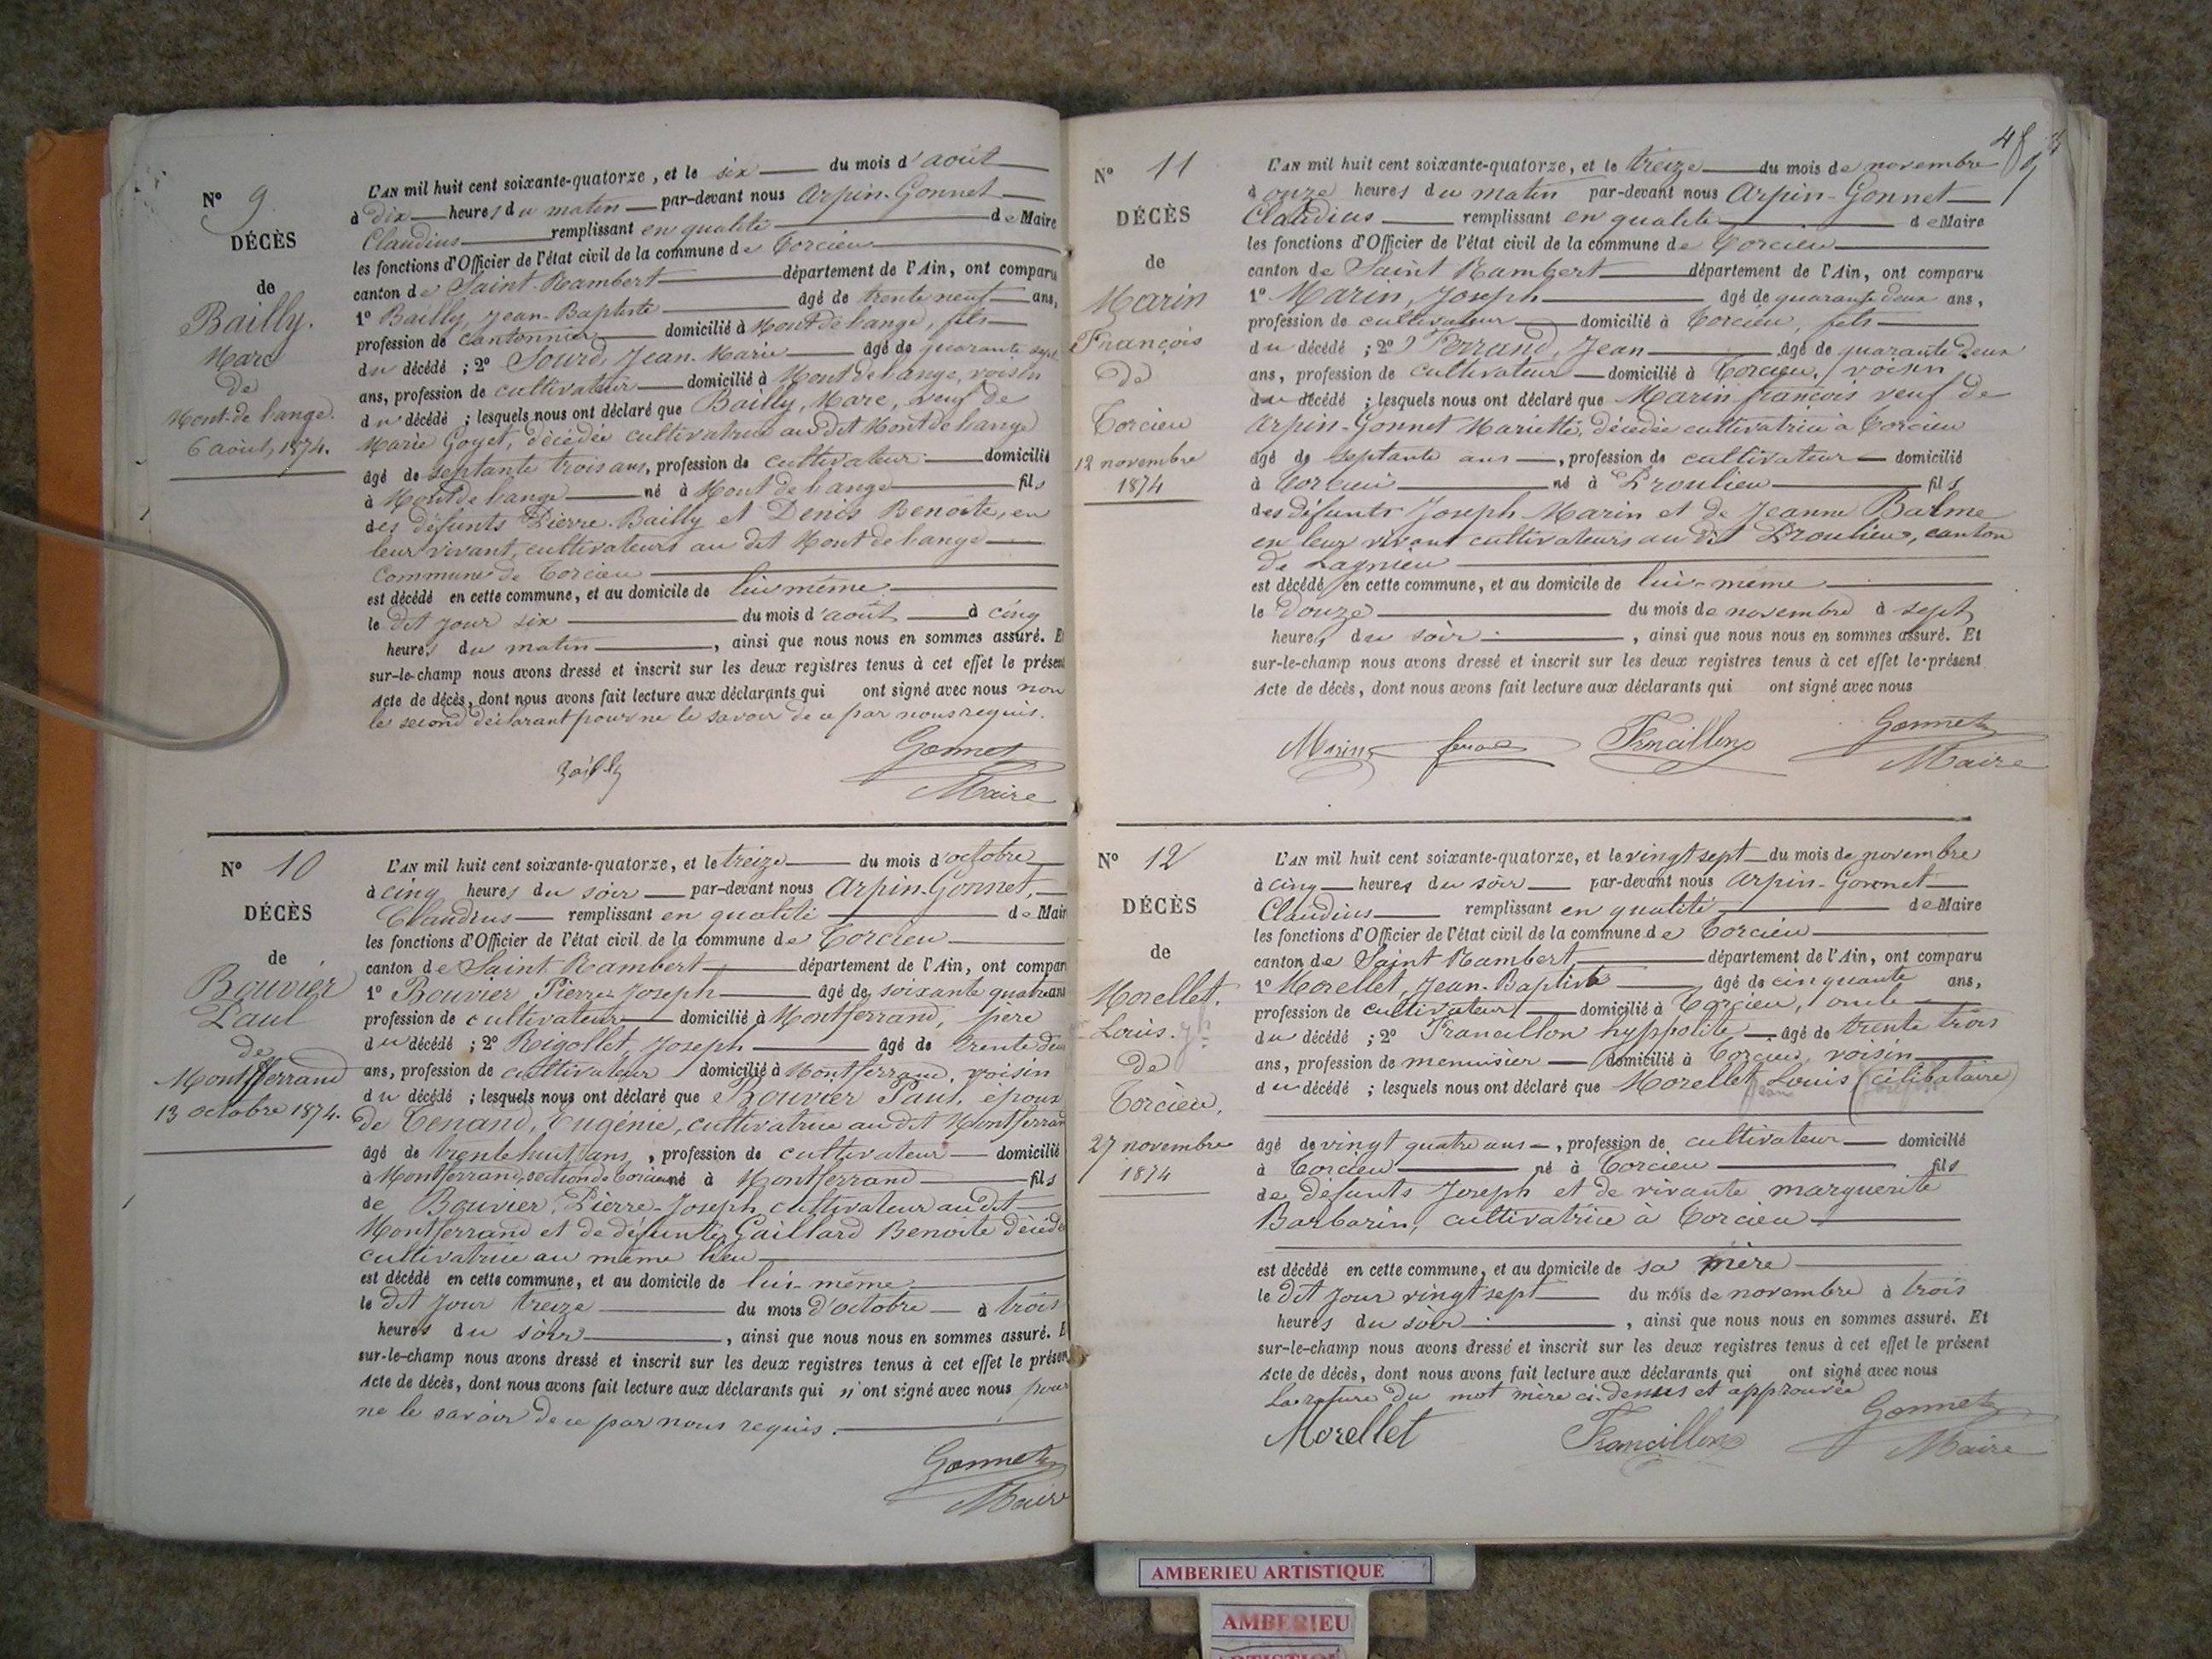 Nº 9
DÉCÈS
de
Bailly.
Marc
de
Mont-de l'ange.
6 août 1874.
L'AN mil huit cent soixante-quatorze, et le six du mois d'août
à dix heures du matin par-devant nous Arpin-Gonnet
Claudius remplissant en qualité de Maire
les fonctions d'Officier de l'état civil de la commune de Torcieu
canton de Saint-Rambert département de l'Ain, ont comparu
1º Bailly, Jean-Baptiste âgé de trente neuf ans,
profession de cantonnier domicilié à Mont de l'ange, fils
du décédé ; 2º Sourd, Jean-Marie âgé de quarante sept
ans, profession de cultivateur domicilié à Mont de l'ange, voisin
du décédé ; lesquels nous ont déclaré que Bailly, Marc, veuf de
Marie Goyet, décédée cultivatrice au dit Mont de l'ange
âgé de septante trois ans, profession de cultivateur domicilié
à Mont de l'ange né à Mont de l'ange fils
des défunts Pierre Bailly et Denis Benoite, en
leur vivant, cultivateurs au dit Mont de l'ange
commune de Torcieu
est décédé en cette commune, et au domicile de lui même
le dit jour six du mois d'août à cinq
heures du matin, ainsi que nous nous en sommes assuré. Et
sur-le-champ nous avons dressé et inscrit sur les deux registres tenus à cet effet le présent
Acte de décès, dont nous avons fait lecture aux déclarants qui ont signé avec nous non
le second déclarant pour ne le savoir de ce par nous requis.
Bailly Gonnet
Maire
Nº 10
DÉCÈS
de
Bouvier
Paul
de
Montferrand
13 octobre 1874.
L'AN mil huit cent soixante-quatorze, et le treize du mois d'octobre
à cinq heures du soir par-devant nous Arpin-Gonnet,
Claudius remplissant en qualité de Mair
les fonctions d'Officier de l'état civil de la commune de Torcieu
canton de Saint Rambert département de l'Ain, ont compar
1º Bouvier Pierre-Joseph âgé de soixante quatre ans
profession de cultivateur domicilié à Montferrand, père
du décédé ; 2º Rigollet, Joseph âgé de trente deux
ans, profession de cultivateur domicilié à Montferrand, voisin
du décédé ; lesquels nous ont déclaré que Bouvier Paul, époux
de Tenand, Eugénie, cultivatrice au dit Montferran
âgé de trente huit ans, profession de cultivateur domicilié
à Montferrand, section de Torcieu né à Montferrand fils
de Bouvier, Pierre-Joseph cultivateur au dit
Montferrand et de défunte Gaillard Benoite décédée
cultivatrice au même lieu
est décédé en cette commune, et au domicile de lui-même
le dit jour treize du mois d'octobre à trois
heures du soir, ainsi que nous nous en sommes assuré. E
sur-le-champ nous avons dressé et inscrit sur les deux registres tenus à cet effet le présen
Acte de décès, dont nous avons fait lecture aux déclarants qui n'ont signé avec nous pour
ne le savoir de ce par nous requis.
Gonnet
Maire
Nº 11
DÉCÈS
de
Marin
François
de
Torcieu
12 novembre
1874
L'AN mil huit cent soixante-quatorze, et le treize du mois de novembre
à onze heures du matin par-devant nous Arpin-Gonnet
Claudius remplissant en qualité de Maire
les fonctions d'Officier de l'état civil de la commune de Torcieu
canton de Saint Rambert département de l'Ain, ont comparu
1º Marin, Joseph âgé de quarante deux ans,
profession de cultivateur domicilié à Torcieu, fils
du décédé ; 2º Ferrand, Jean âgé de quarante deux
ans, profession de cultivateur domicilié à Torcieu, voisin
du décédé ; lesquels nous ont déclaré que Marin françois veuf de
Arpin-Gonnet Mariette, décédée cultivatrice à Torcieu
âgé de septante ans, profession de cultivateur domicilié
à Torcieu né à Proulieu fils
des défunts Joseph Marin et de Jeanne Balme
en leur vivant cultivateurs au dit Proulieu, canton
de Lagnieu
est décédé en cette commune, et au domicile de lui-même
le douze du mois de novembre à sept
heures du soir, ainsi que nous nous en sommes assuré. Et
sur-le-champ nous avons dressé et inscrit sur les deux registres tenus à cet effet le présent
Acte de décès, dont nous avons fait lecture aux déclarants qui ont signé avec nous
Marin Francillon Gonnet
Maire
Nº 12
DÉCÈS
de
Morellet.
Louis.
de
Torcieu.
27 novembre
1874
L'AN mil huit cent soixante-quatorze, et le vingt sept du mois de novembre
à cinq heures du soir par-devant nous Arpin-Gonnet
Claudius remplissant en qualité de Maire
les fonctions d'Officier de l'état civil de la commune de Torcieu
canton de Saint Rambert département de l'Ain, ont comparu
1º Morellet, Jean-Baptiste âgé de cinquante ans,
profession de cultivateur domicilié à Torcieu, oncle
du décédé ; 2º Francillon hyppolite âgé de trente trois
ans, profession de menuisier domicilié à Torcieu, voisin
du décédé ; lesquels nous ont déclaré que Morellet Louis (célibataire)
Jean
âgé de vingt quatre ans, profession de cultivateur domicilié
à Torcieu né à Torcieu fils
de défunts Joseph et de vivante marguerite
Barbarin, cultivatrice à Torcieu
est décédé en cette commune, et au domicile de sa mère
le dit jour vingt sept du mois de novembre à trois
heures du soir, ainsi que nous nous en sommes assuré. Et
sur-le-champ nous avons dressé et inscrit sur les deux registres tenus à cet effet le présent
Acte de décès, dont nous avons fait lecture aux déclarants qui ont signé avec nous
La rature du mot mère ci-dessus et approuvée
Morellet Francillon Gonnet
Maire
AMBERIEU ARTISTIQUE
AMBERIEU
ARTISTIQUE